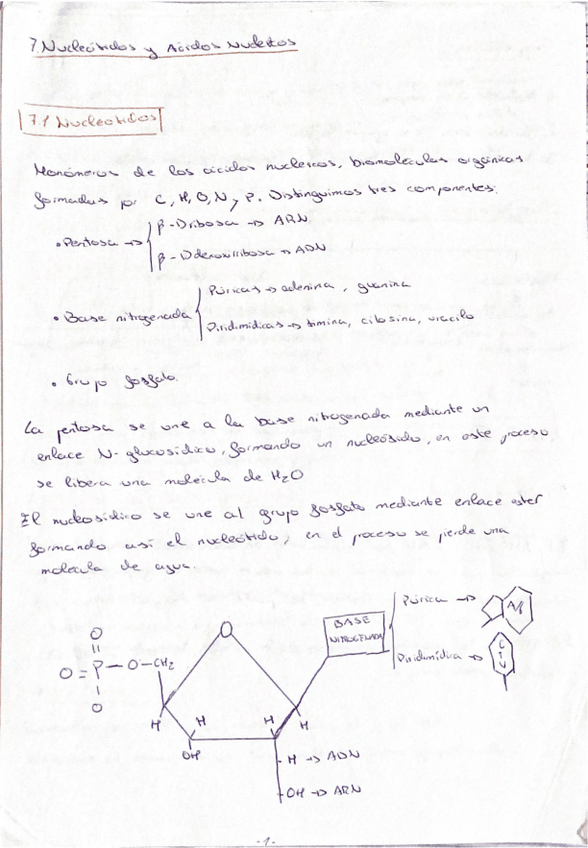 7. Nucleótidos y Ácidos Nucleicos
7.1 Nucleotidos
Monómeros de los ácidos nucleicos, biomoléculas orgánicas
formadas por C, H, O, N y P. Distinguimos tres componentes:
• Pentosa → β-D ribosa → ARN
β-D desoxirribosa → ADN
• Base nitrogenada Púricas → adenina, guanina
Piridimídicas → timina, citosina, uracilo
• Grupo fosfato.
La pentosa se une a la base nitrogenada mediante un
enlace N-glucosídico, formando un nucleósido, en este proceso
se libera una molécula de H2O
El nucleosídico se une al grupo fosfato mediante enlace ester
formando así el nucleótido, en el proceso se pierde una
molécula de agua.
O
O = P - O - CH2
O
O
BASE NITROGENADA
Púrica → A/G
Piridimídica → C T U
H H H H
OH
H → ADN
OH → ARN
-1-